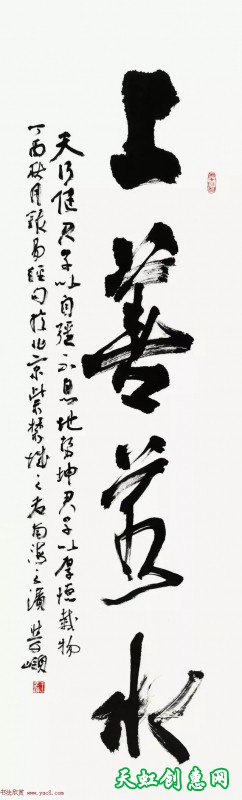 上善若水
天行健君子以自彊不息地势坤君子以厚德載物
丁酉秋月録易經句於北京紫禁城之右南海之濱
书法欣赏
www.yac8.com
天虹创惠网